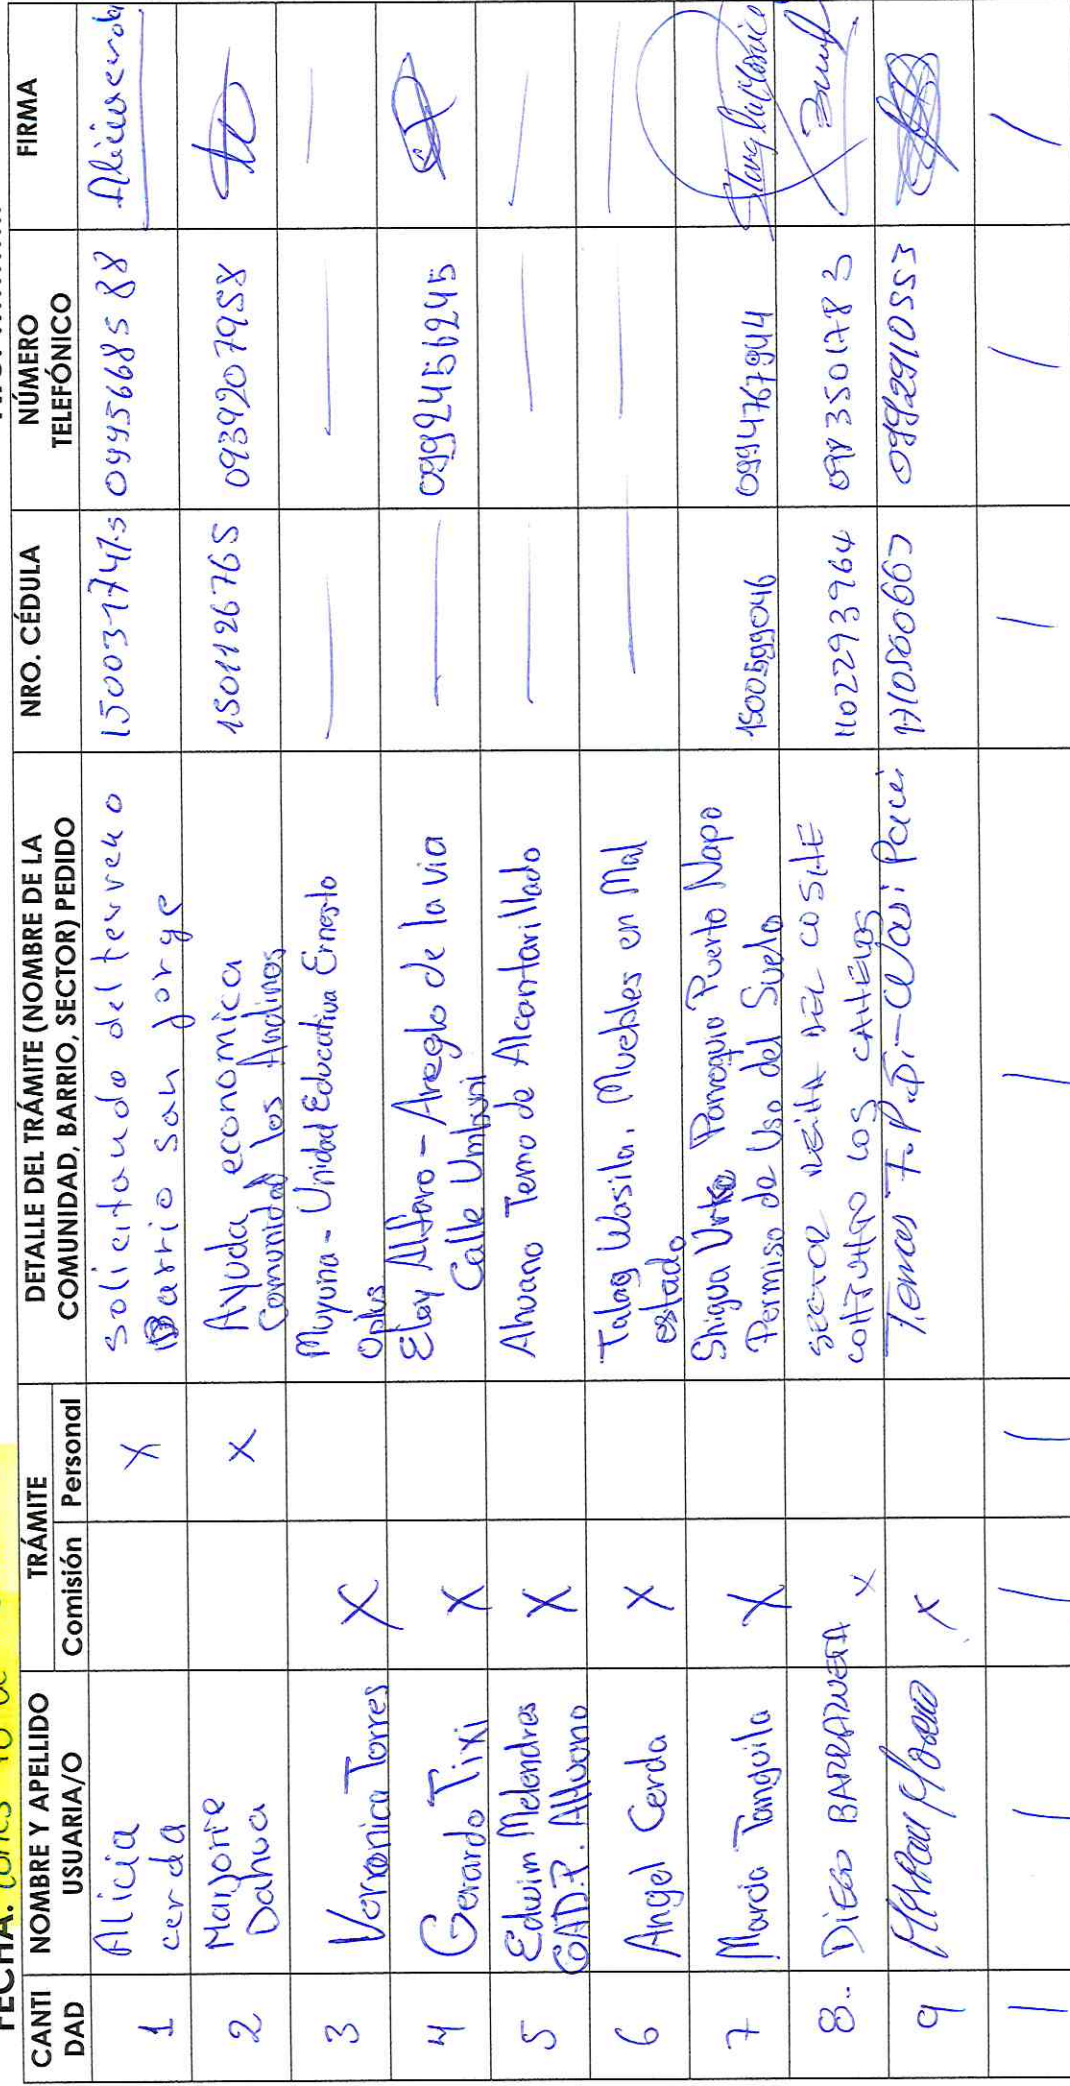 FECHA: Lunes 10 de
CANTI DAD
NOMBRE Y APELLIDO USUARIA/O
TRÁMITE
Comisión
Personal
DETALLE DEL TRÁMITE (NOMBRE DE LA COMUNIDAD, BARRIO, SECTOR) PEDIDO
NRO. CÉDULA
NÚMERO TELEFÓNICO
FIRMA
1
Alicia
cerda
X
solicitando del terreno
Barrio san jorge
0995668588
2
Marjorie
Dahua
X
Ayuda economica
Comunidad los Andinos
1501126765
0939207958
3
Veronica Torres
X
Muyuna - Unidad Educativa Ernesto
—
—
—
4
Gerardo Tixi
X
Eloy Alfaro - Areglo de la via
Calle
—
0992456245
5
Edwim Melendres
GAD.P. Ahuano
X
Ahuano Temo de Alcantarillado
—
—
—
6
Angel Cerda
X
Talag Wasila. Muebles en Mal
estado
—
—
—
7
Marcia Tanguila
X
Shigua Urko Parroquia Puerto Napo
Permiso de Uso del Suelo
1500599046
0994767944
8..
DIEGO
X
SECTOR
LOS
1102293964
0983501783
9
X
/
/
/
/
/
/
/
/